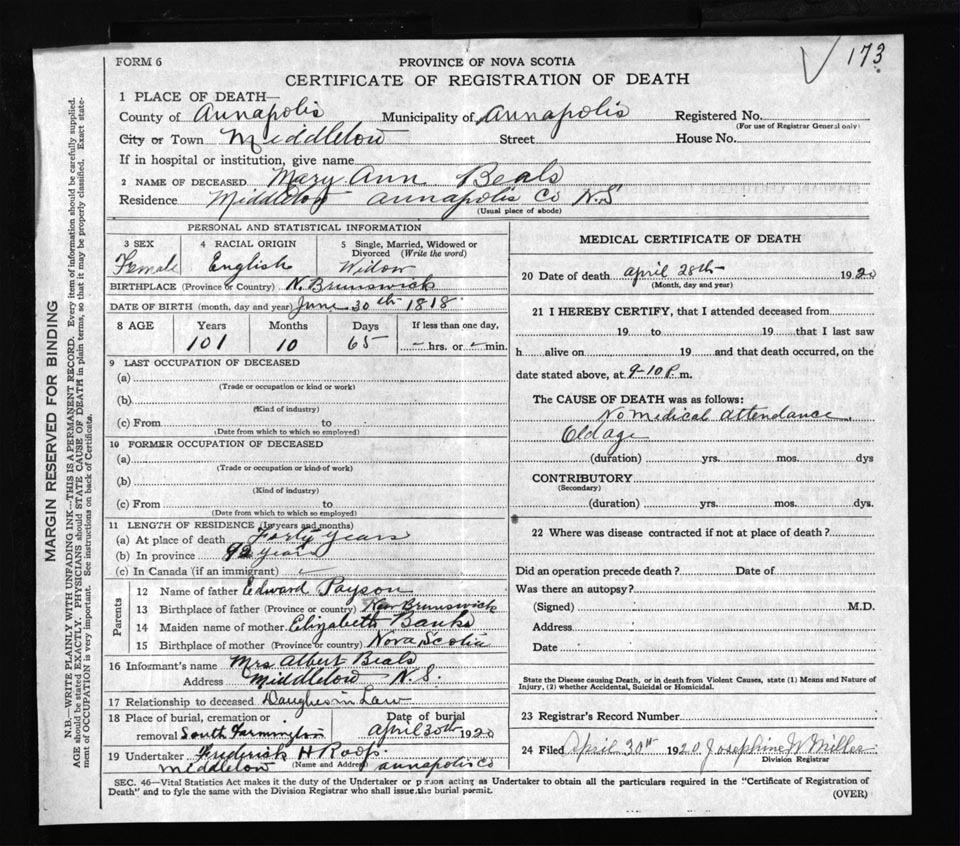 173
FORM 6
PROVINCE OF NOVA SCOTIA
CERTIFICATE OF REGISTRATION OF DEATH
1 PLACE OF DEATH—
County of Annapolis Municipality of Annapolis Registered No.
(For use of Registrar General only)
City or Town Middleton Street House No.
If in hospital or institution, give name
2 NAME OF DECEASED Mary Ann Beals
Residence Middleton Annapolis Co N.S
(Usual place of abode)
PERSONAL AND STATISTICAL INFORMATION
3 SEX 4 RACIAL ORIGIN 5 Single, Married, Widowed or Divorced (Write the word)
Female English Widow
BIRTHPLACE (Province or Country) N. Brunswick
DATE OF BIRTH (month, day and year) June 30th 1818
8 AGE Years Months Days If less than one day,
101 10 65 – hrs. or – min.
9 LAST OCCUPATION OF DECEASED
(a)
(Trade or occupation or kind or work)
(b)
(Kind of industry)
(c) From to
(Date from which to which so employed)
10 FORMER OCCUPATION OF DECEASED
(a)
(Trade or occupation or kind of work)
(b)
(Kind of industry)
(c) From to
(Date from which to which so employed)
11 LENGTH OF RESIDENCE (In years and months)
(a) At place of death Forty years
(b) In province 92 years
(c) In Canada (if an immigrant)
Parents
12 Name of father Edward Payson
13 Birthplace of father (Province or country) New Brunswick
14 Maiden name of mother Elizabeth Banks
15 Birthplace of mother (Province or country) Nova Scotia
16 Informant's name Mrs Albert Beals
Address Middleton N.S.
17 Relationship to deceased Daughter in Law
18 Place of burial, cremation or Date of burial
removal South Farmington April 30th 1920
19 Undertaker Frederick H Roop
(Name and Address)
Middleton Annapolis Co
MEDICAL CERTIFICATE OF DEATH
20 Date of death April 28th 1920
(Month, day and year)
21 I HEREBY CERTIFY, that I attended deceased from
19 to 19 that I last saw
h alive on 19 and that death occurred, on the
date stated above, at 9-10 P. m.
The CAUSE OF DEATH was as follows:
No medical attendance
Old age
(duration) yrs. mos. dys
CONTRIBUTORY
(Secondary)
(duration) yrs. mos. dys.
22 Where was disease contracted if not at place of death?
Did an operation precede death? Date of
Was there an autopsy?
(Signed) M.D.
Address
Date
State the Disease causing Death, or in death from Violent Causes, state (1) Means and Nature of
Injury, (2) whether Accidental, Suicidal or Homicidal.
23 Registrar's Record Number
24 Filed April 30th 1920 Josephine W Miller
Division Registrar
SEC. 46—Vital Statistics Act makes it the duty of the Undertaker or person acting as Undertaker to obtain all the particulars required in the "Certificate of Registration of
Death" and to fyle the same with the Division Registrar who shall issue the burial permit.
(OVER)
MARGIN RESERVED FOR BINDING
N.B.—WRITE PLAINLY WITH UNFADING INK—THIS IS A PERMANENT RECORD. Every item of information should be carefully supplied.
AGE should be stated EXACTLY. PHYSICIANS should STATE CAUSE OF DEATH in plain terms, so that it may be properly classified. Exact state-
ment of OCCUPATION is very important. See instructions on back of Certificate.